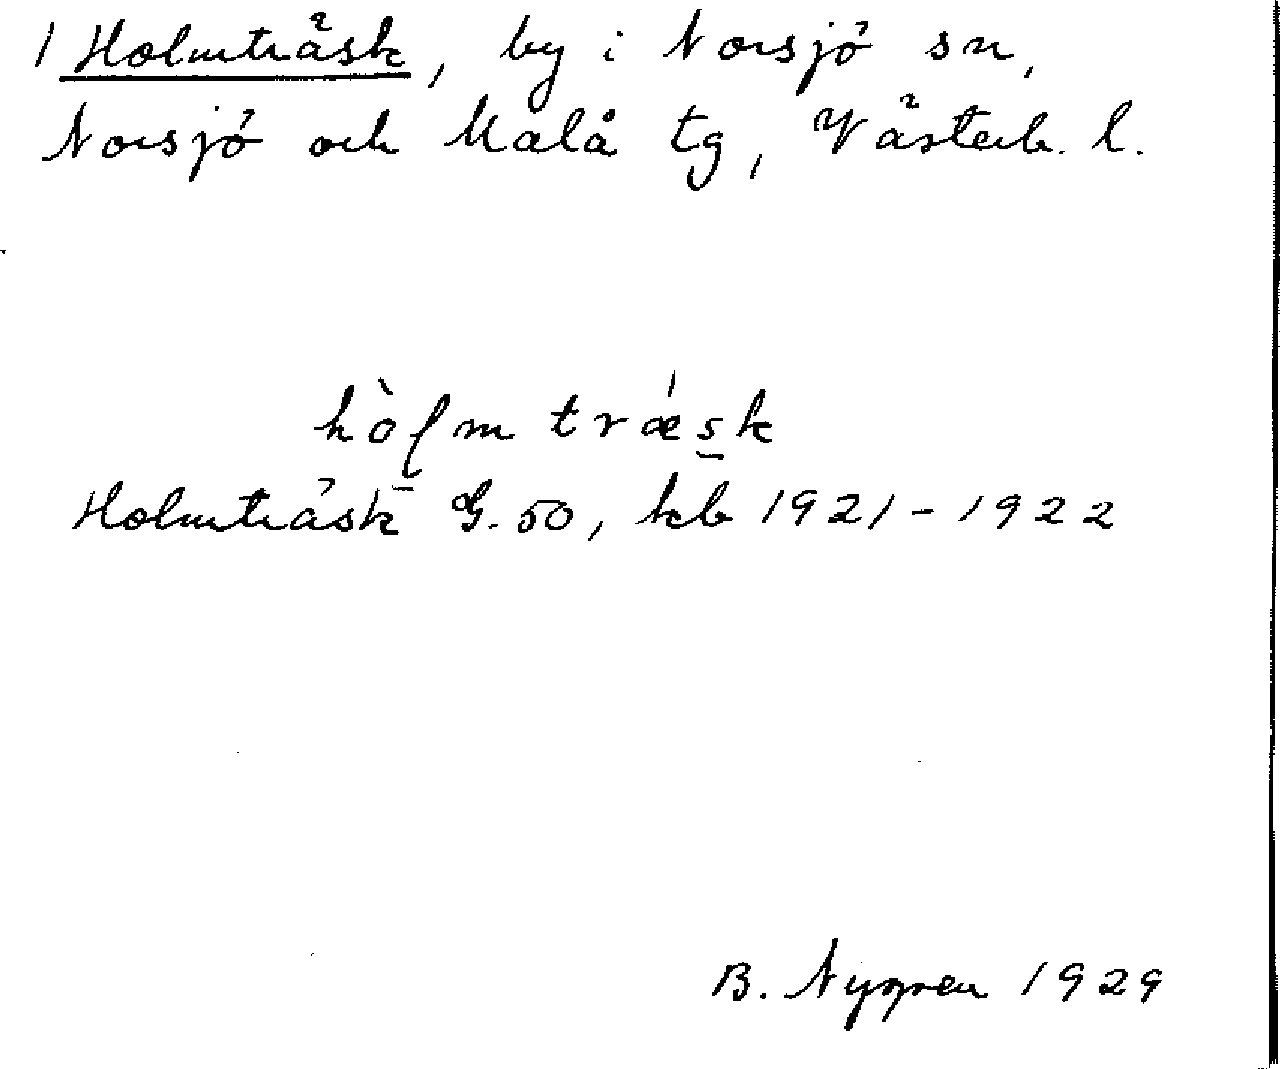 1 Holmträsk, by i Norsjö sn,
Norsjö och Malå tg, Västerb. l.
hòlm træ´sk
Holmträsk G. 50, kb 1921-1922
B. Nygren 1929